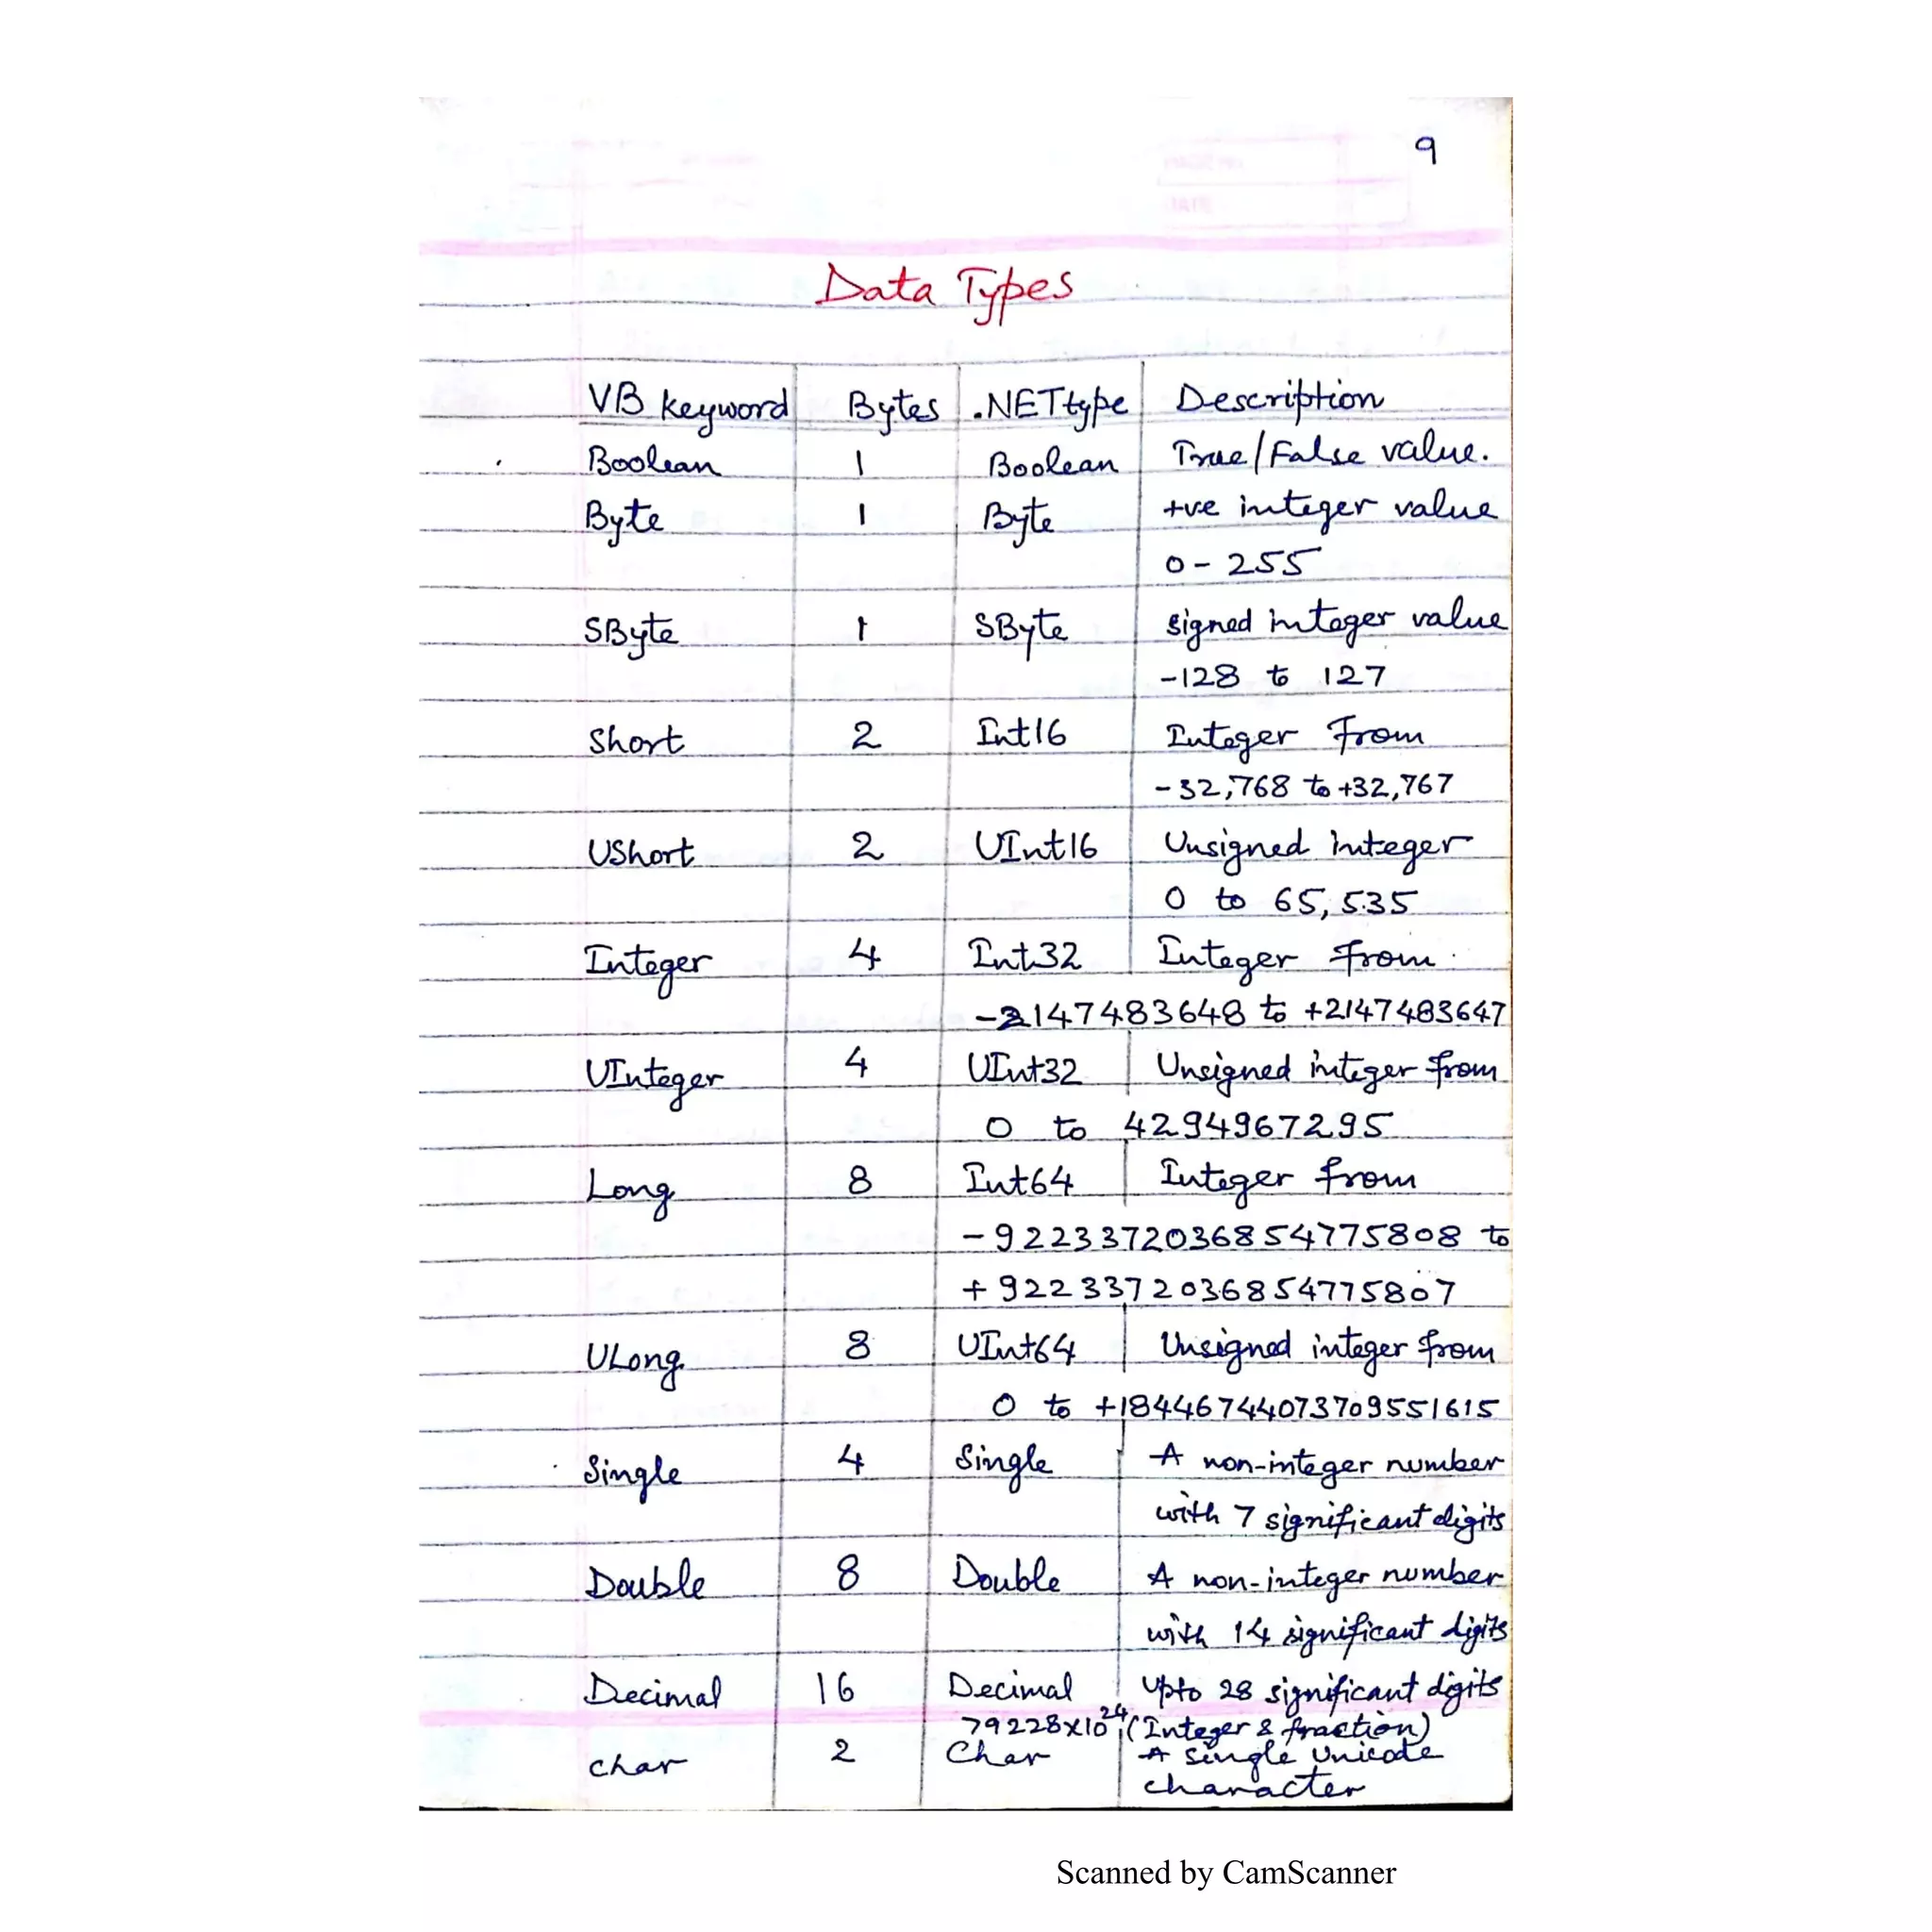 9
Data Types
VB keyword Bytes .NET type Description
Boolean 1 Boolean True/False value.
Byte 1 Byte +ve integer value
0 - 255
SByte 1 SByte signed integer value
-128 to 127
Short 2 Int16 Integer from
-32,768 to +32,767
UShort 2 UInt16 Unsigned integer
0 to 65,535
Integer 4 Int32 Integer from
-2147483648 to +2147483647
UInteger 4 UInt32 Unsigned integer from
0 to 4294967295
Long 8 Int64 Integer from
-9223372036854775808 to
+9223372036854775807
ULong 8 UInt64 Unsigned integer from
0 to +18446744073709551615
Single 4 Single A non-integer number
with 7 significant digits
Double 8 Double A non-integer number
with 14 significant digits
Decimal 16 Decimal Upto 28 significant digits
79228x10^24 (Integer & fraction)
Char 2 Char A single Unicode
character
Scanned by CamScanner